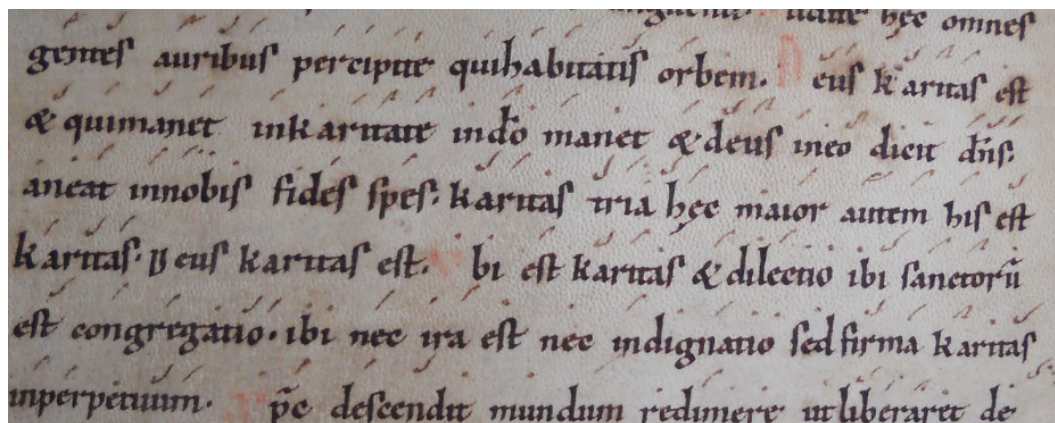 hęc omnes
gentes auribus percipite quihabitatis orbem. Deus karitas est
& quimanet inkaritate indo manet & deus ineo dicit dns.
aneat innobis fides spes. karitas tria hęc maior autem his est
karitas. Deus karitas est. bi est karitas & dilectio ibi sanctorū
est congregatio. ibi nec ira est nec indignatio sed firma karitas
inperpetuum. xp̄c descendit mundum redimere ut liberaret de